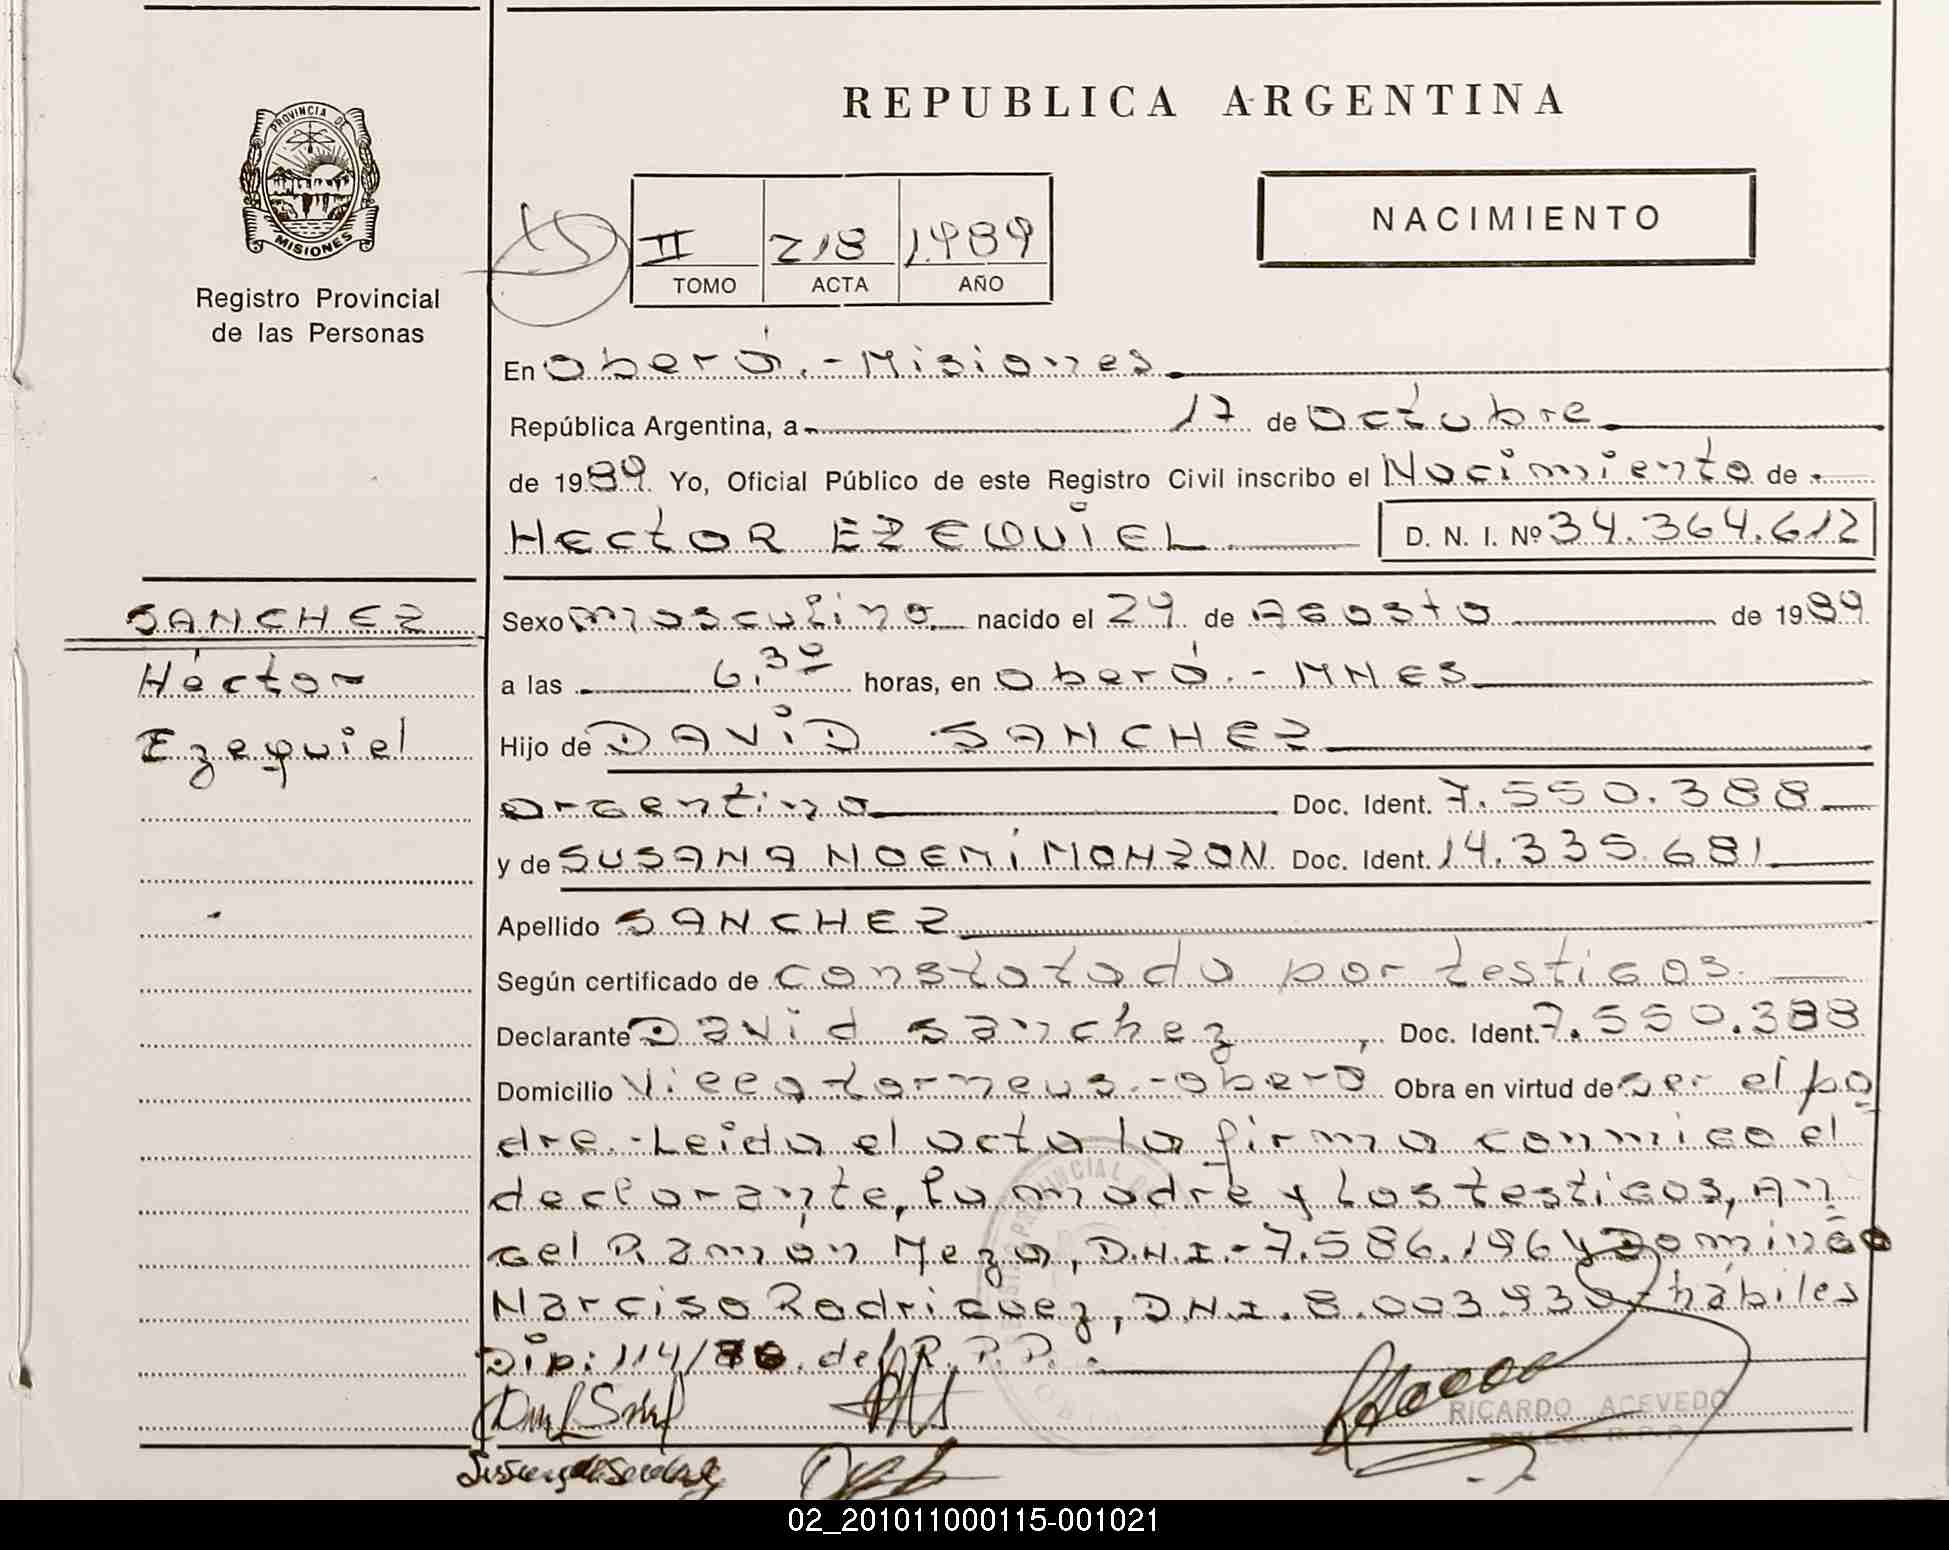 REPUBLICA ARGENTINA
PROVINCIA DE
MISIONES
Registro Provincial
de las Personas
II 218 1.989
TOMO ACTA AÑO
NACIMIENTO
En Oberá.-Misiones
República Argentina, a 17 de Octubre
de 1989. Yo, Oficial Público de este Registro Civil inscribo el Nacimiento de
HectoR EZEQUiEL D. N. I. Nº 34.364.612
SANCHEZ
Héctor
Ezequiel
Sexo masculino nacido el 24 de Agosto de 1989
a las 6.30 horas, en Oberá.- MNES
Hijo de DAViD SANCHEZ
argentino Doc. Ident. 7.550.388
y de SUSANA NOEMÍ MONZON Doc. Ident. 14.335.681
Apellido SANCHEZ
Según certificado de constatado por testigos.
Declarante David Sanchez, Doc. Ident. 7.550.388
Domicilio Villa torneus.-Oberá Obra en virtud de ser el pa
dre.-Leida el acta la firma conmigo el
declarante, la madre y Los testigos, An
gel Ramón Meza, D.N.I.-7.586.196 y Domingo
Narciso Rodriguez, D.N.I. 8.003.930-hábiles
Dip: 114/78. del R.P.P.-
RICARDO ACEVEDO
02_201011000115-001021